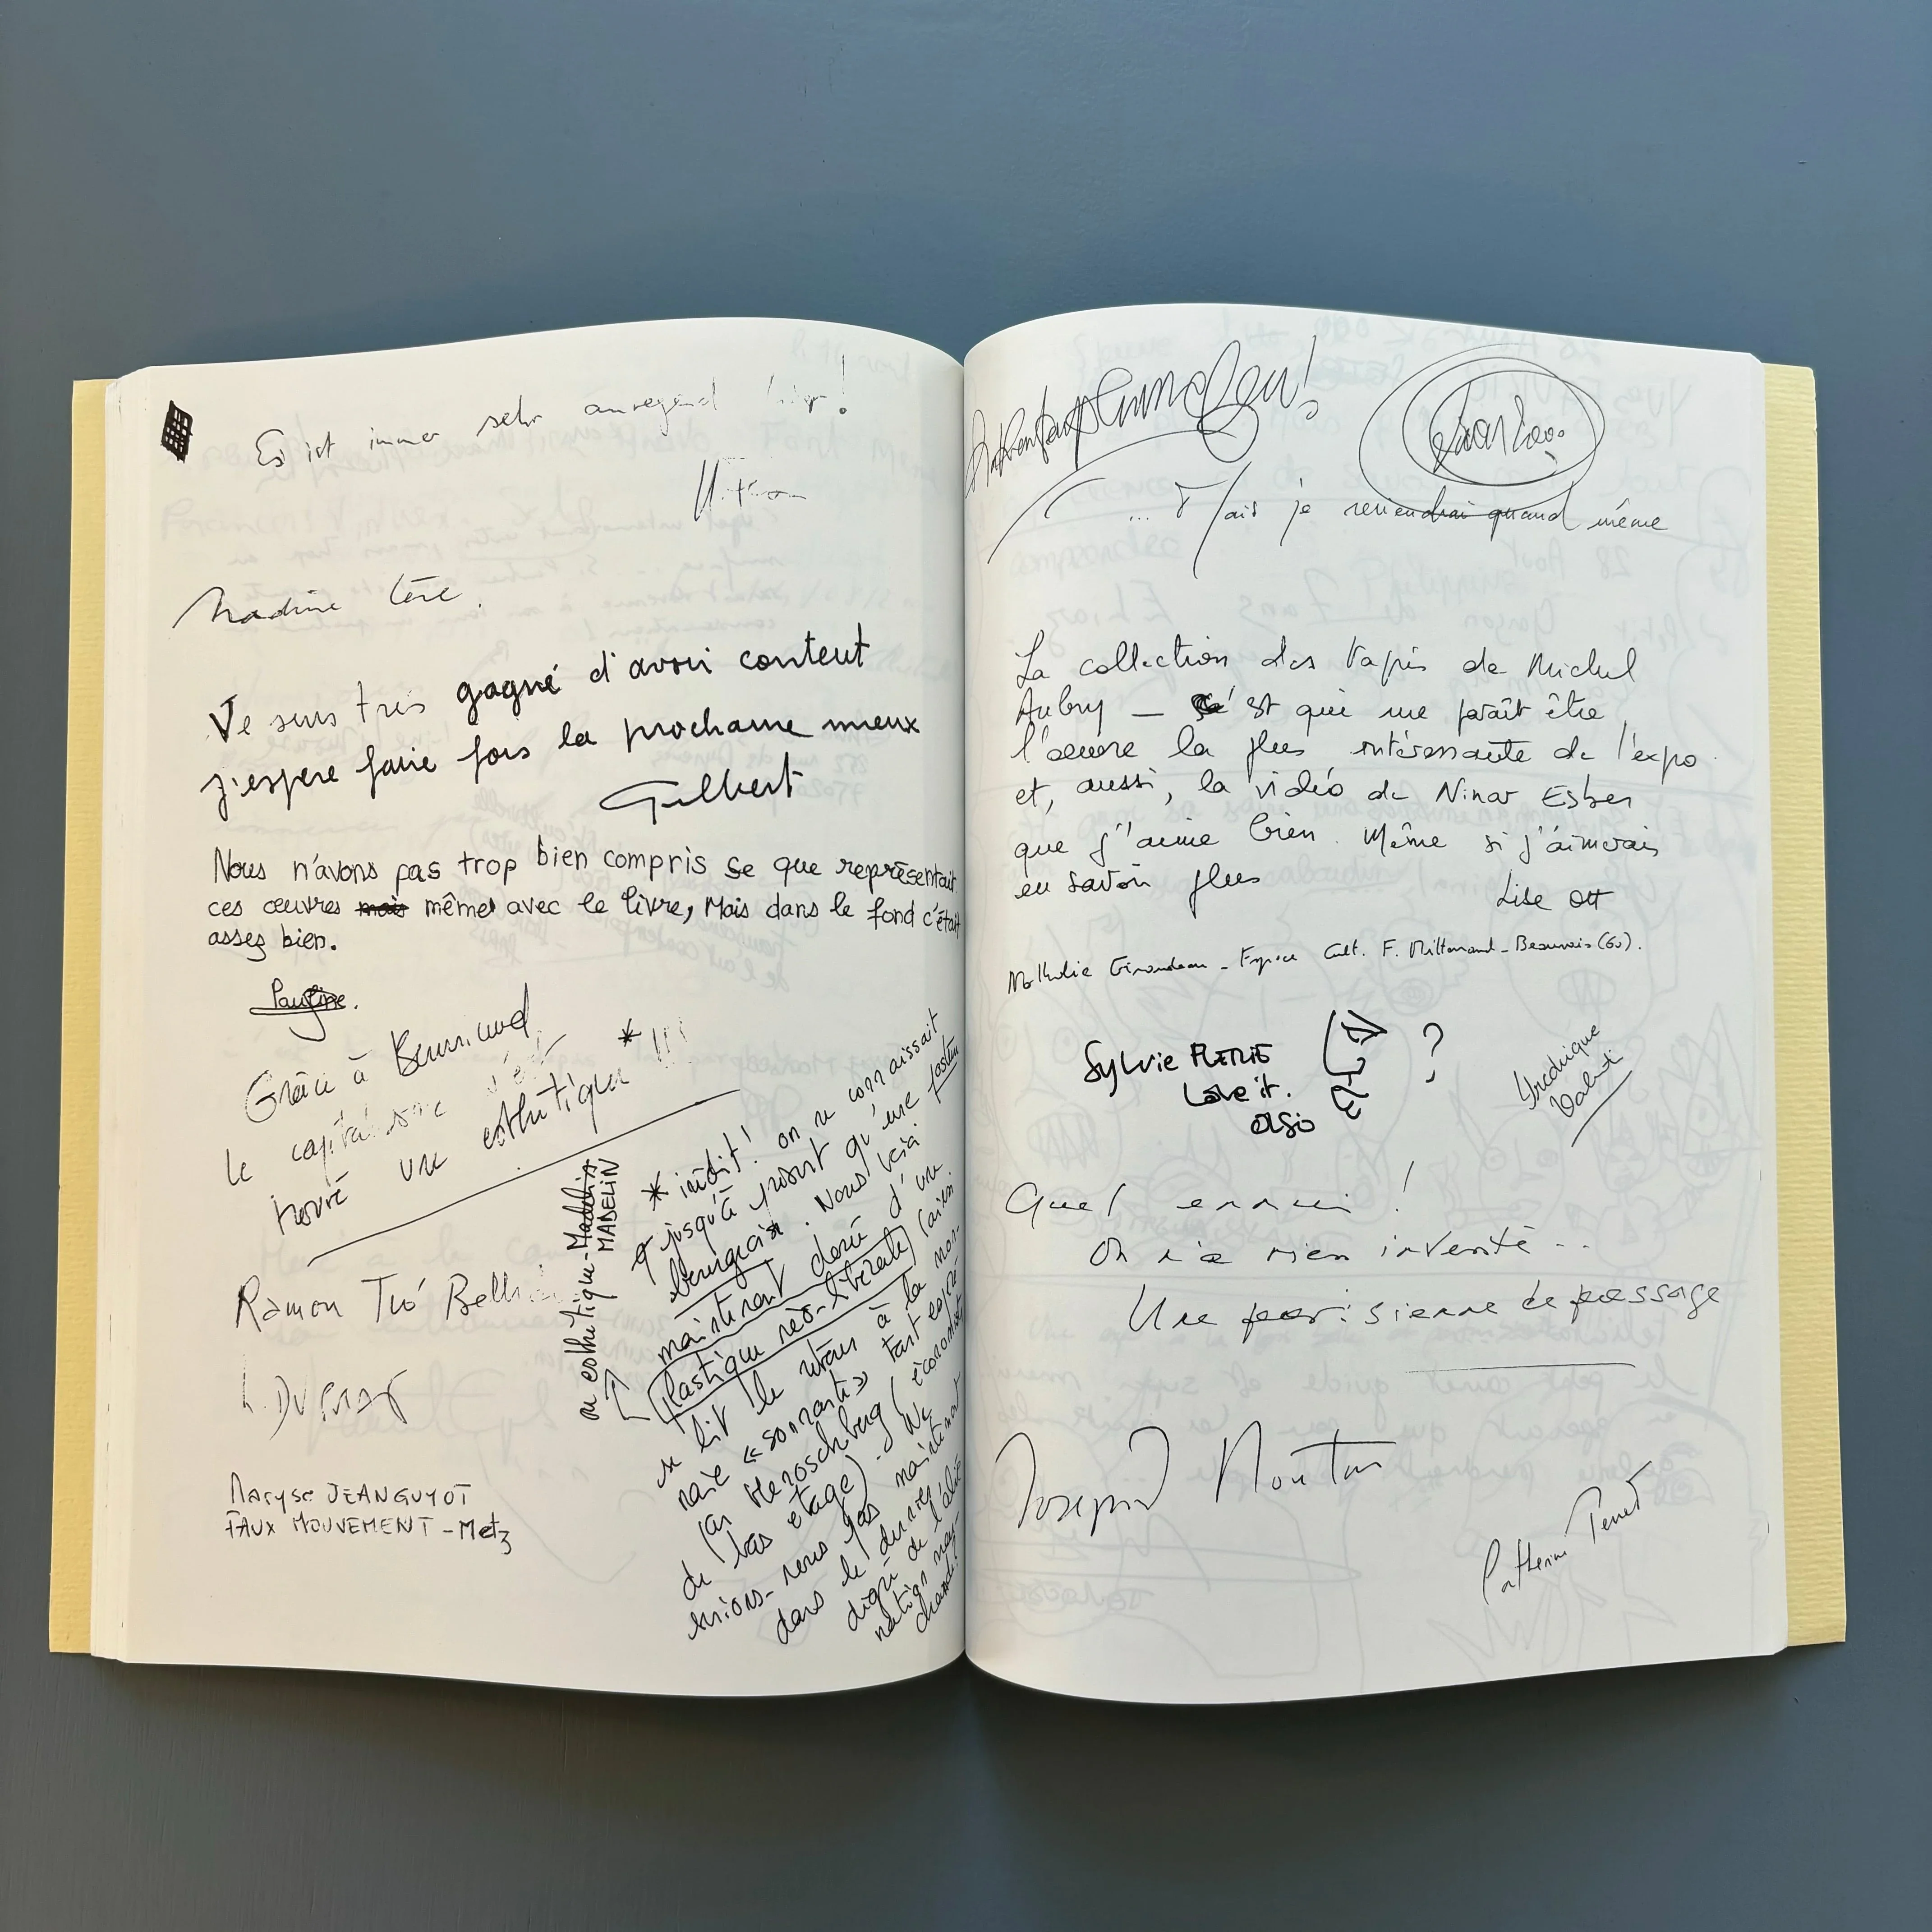 Es ist immer sehr anregend hier!
Nadine
Je suis très gagné d'avoir content
j'espere faire fois la prochaine mieux
Gilbert
Nous n'avons pas trop bien compris se que représentait
ces œuvres mais même avec le livre, Mais dans le fond c'était
assez bien.
Pauline.
Grâce à
le capitalisme s'est
trouvé une esthétique * !!!
* inédit! on ne connaissait
jusqu'à présent qu'une
bourgeoise. Nous voici
maintenant doté d'une
plastique néo-libérale (ainsi
se lit le retour à la mon-
naie « sonnante » tant espéré
par
du bas étage). Ne
serions-nous pas maintenant
dans le dernier
digne de l'alié-
nation mar-
chande?
ou esthétique-Madelin
MADELIN
Ramon Tió
L. DUPRAT
Maryse JEANGUYOT
FAUX MOUVEMENT - Metz
... Mais je reviendrai quand même
La collection des tapis de Michel
Aubry — c'est qui me paraît être
l'œuvre la plus intéressante de l'expo
et, aussi, la vidéo de Ninar Esber
que j'aime bien. Même si j'aimerais
en savoir plus
Lise Ott
Nathalie Giraudeau - Espace Cult. F. Mitterrand - Beauvais (60).
Sylvie
Love it.
also
?
Frédérique
Valenti
Quel ennui!
On n'a rien inventé...
Une parisienne de passage
Catherine